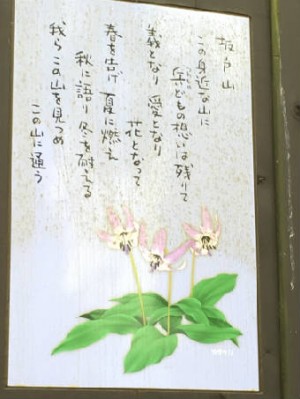 坂戸山
この身近な山に
兵どもの想いは残りて
義となり 愛となり
花となって
春を告げ 夏に燃え
秋に語り 冬を耐える
我らこの山を見つめ
この山に通う